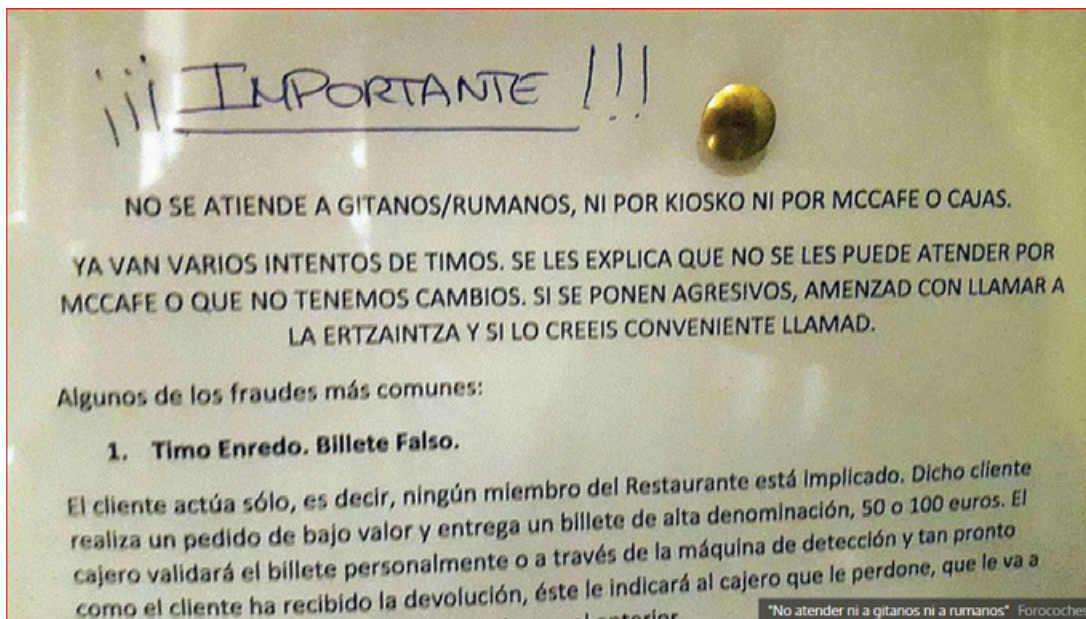 ¡¡¡ IMPORTANTE !!!
NO SE ATIENDE A GITANOS/RUMANOS, NI POR KIOSKO NI POR MCCAFE O CAJAS.
YA VAN VARIOS INTENTOS DE TIMOS. SE LES EXPLICA QUE NO SE LES PUEDE ATENDER POR
MCCAFE O QUE NO TENEMOS CAMBIOS. SI SE PONEN AGRESIVOS, AMENZAD CON LLAMAR A
LA ERTZAINTZA Y SI LO CREEIS CONVENIENTE LLAMAD.
Algunos de los fraudes más comunes:
1. Timo Enredo. Billete Falso.
El cliente actúa sólo, es decir, ningún miembro del Restaurante está implicado. Dicho cliente
realiza un pedido de bajo valor y entrega un billete de alta denominación, 50 o 100 euros. El
cajero validará el billete personalmente o a través de la máquina de detección y tan pronto
como el cliente ha recibido la devolución, éste le indicará al cajero que le perdone, que le va a
anterior
"No atender ni a gitanos ni a rumanos" Forocoches